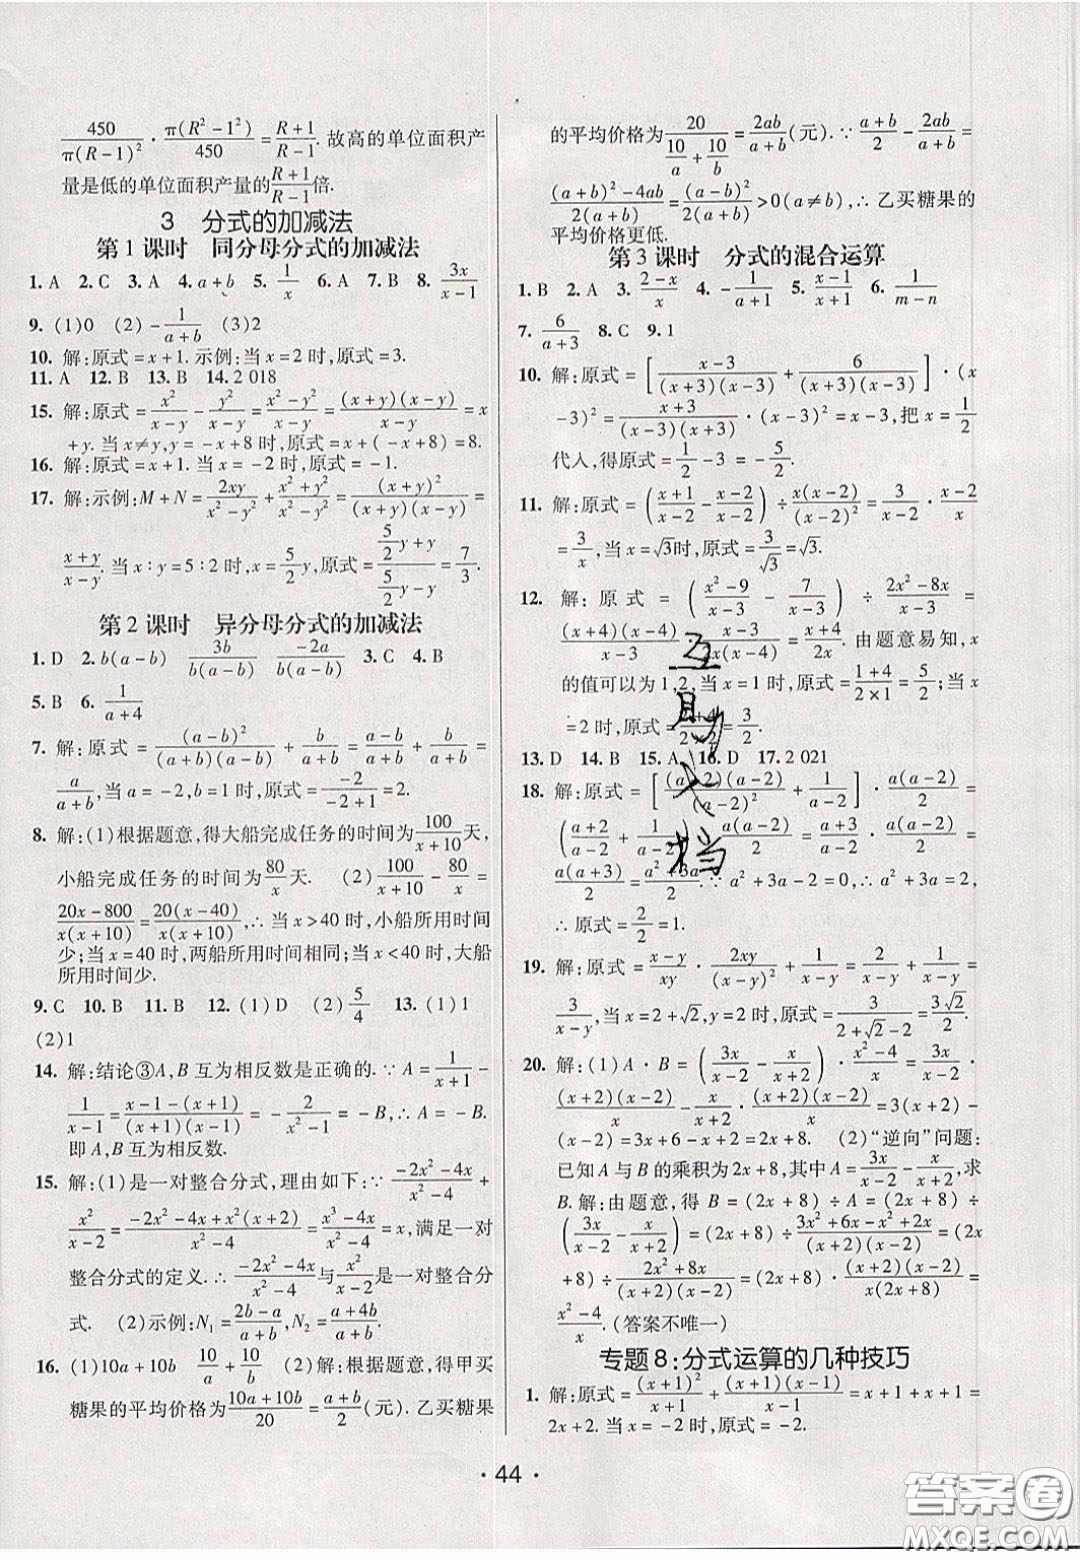 450/π(R-1)² · π(R²-1²)/450 = (R+1)/(R-1). 故高的单位面积产
量是低的单位面积产量的(R+1)/(R-1)倍.
3 分式的加减法
第1课时 同分母分式的加减法
1. A 2. C 3. A 4. a+b 5. 1/x 6. A 7. B 8. 3x/(x-1)
9. (1)0 (2)-1/(a+b) (3)2
10. 解:原式=x+1. 示例:当x=2时,原式=3.
11. A 12. B 13. B 14. 2 018
15. 解:原式=x²/(x-y)-y²/(x-y)=(x²-y²)/(x-y)=(x+y)(x-y)/(x-y)=x
+y. 当x≠y,y=-x+8时,原式=x+(-x+8)=8.
16. 解:原式=x+1. 当x=-2时,原式=-1.
17. 解:示例:M+N=2xy/(x²-y²)+(x²+y²)/(x²-y²)=(x+y)²/(x+y)(x-y)=
(x+y)/(x-y). 当x∶y=5∶2时,x=5/2 y,原式=(5/2 y+y)/(5/2 y-y)=7/3.
第2课时 异分母分式的加减法
1. D 2. b(a-b) 3b/b(a-b) -2a/b(a-b) 3. C 4. B
5. B 6. 1/(a+4)
7. 解:原式=(a-b)²/(a+b)(a-b)+b/(a+b)=(a-b)/(a+b)+b/(a+b)=
a/(a+b),当a=-2,b=1时,原式=-2/(-2+1)=2.
8. 解:(1)根据题意,得大船完成任务的时间为100/(x+10)天,
小船完成任务的时间为80/x天. (2)100/(x+10)-80/x=
(20x-800)/x(x+10)=20(x-40)/x(x+10),∴当x>40时,小船所用时间
少;当x=40时,两船所用时间相同;当x<40时,大船
所用时间少.
9. C 10. B 11. B 12. (1)D (2)5/4 13. (1)1
(2)1
14. 解:结论③A,B互为相反数是正确的.∵A=1/(x+1)-
1/(x-1)=(x-1-(x+1))/(x+1)(x-1)=-2/(x²-1)=-B,∴A=-B.
即A,B互为相反数.
15. 解:(1)是一对整合分式,理由如下:∵(-2x²-4x)/(x²-4)+
x²/(x-2)=(-2x²-4x+x²(x+2))/(x²-4)=(x³-4x)/(x²-4)=x,满足一对
整合分式的定义.∴(-2x²-4x)/(x²-4)与x²/(x-2)是一对整合分
式. (2)示例:N₁=(2b-a)/(a+b),N₂=(a+4b)/(a+b).
16. (1)10a+10b 10/a+10/b (2)解:根据题意,得甲买
糖果的平均价格为(10a+10b)/20=(a+b)/2(元).乙买糖果
的平均价格为20/(10/a+10/b)=2ab/(a+b)(元).∵(a+b)/2-2ab/(a+b)=
((a+b)²-4ab)/2(a+b)=(a-b)²/2(a+b)>0(a≠b),∴乙买糖果的
平均价格更低.
第3课时 分式的混合运算
1. B 2. A 3. (2-x)/x 4. -1/(a+1) 5. (x-1)/(x+1) 6. 1/(m-n)
7. 6/(a+3) 8. C 9. 1
10. 解:原式=[(x-3)/(x+3)(x-3)+6/(x+3)(x-3)]·(x
-3)²=(x+3)/(x-3)(x+3)·(x-3)²=x-3,把x=1/2
代入,得原式=1/2-3=-5/2.
11. 解:原式=((x+1)/(x-2)-(x-2)/(x-2))÷x(x-2)/(x-2)²=3/(x-2)·(x-2)/x
=3/x,当x=√3时,原式=3/√3=√3.
12. 解:原式=((x²-9)/(x-3)-7/(x-3))÷(2x²-8x)/(x-3)=
(x+4)(x-4)/(x-3)·(x-3)/2x(x-4)=(x+4)/2x. 由题意易知,x
的值可以为1,2,当x=1时,原式=(1+4)/(2×1)=5/2;当x
=2时,原式=(2+4)/(2×2)=3/2.
13. D 14. B 15. A 16. D 17. 2 021
18. 解:原式=[(a+2)(a-2)/(a-2)²+1/(a-2)]·a(a-2)/2=
((a+2)/(a-2)+1/(a-2))·a(a-2)/2=(a+3)/(a-2)·a(a-2)/2=
a(a+3)/2=(a²+3a)/2.∵a²+3a-2=0,∴a²+3a=2,
∴原式=2/2=1.
19. 解:原式=(x-y)/xy·2xy/(x-y)²+1/(x-y)=2/(x-y)+1/(x-y)=
3/(x-y),当x=2+√2,y=2时,原式=3/(2+√2-2)=3√2/2.
20. 解:(1)A·B=(3x/(x-2)-x/(x+2))·(x²-4)/x=3x/(x-2)·
(x+2)(x-2)/x-x/(x+2)·(x+2)(x-2)/x=3(x+2)-
(x-2)=3x+6-x+2=2x+8. (2)“逆向”问题:
已知A与B的乘积为2x+8,A=3x/(x-2)-x/(x+2),求
B. 解:由题意,得B=(2x+8)÷A=(2x+8)÷
(3x/(x-2)-x/(x+2))=(2x+8)÷(3x²+6x-x²+2x)/(x+2)(x-2)=(2x
+8)÷(2x²+8x)/(x+2)(x-2)=(2x+8)·(x+2)(x-2)/x(2x+8)=
(x²-4)/x. (答案不唯一)
专题8:分式运算的几种技巧
1. 解:原式=(x+1)²/(x+1)+(x+1)(x-1)/(x-1)=x+1+x+1=
2x+2. 当x=-2时,原式=-2.
·44·
互
助
文
档
答案圈
MXQE.COM